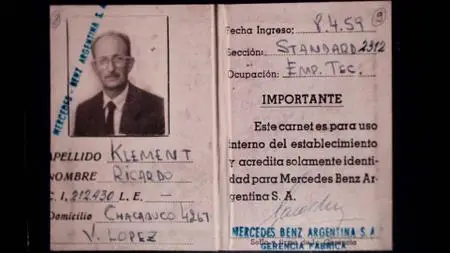 MERCEDES-BENZ ARGENTINA S. A.
APELLIDO KLEMENT
NOMBRE RICARDO
C. I. 212430 L. E. —
Domicilio CHACABUCO 4261
V. LOPEZ
Fecha Ingreso: 8.4.59
Sección: STANDARD 2312
Ocupación: EMP. TEC.
IMPORTANTE
Este carnet es para uso
interno del establecimiento
y acredita solamente identi-
dad para Mercedes Benz Ar-
gentina S. A.
MERCEDES BENZ ARGENTINA S.A.
Sello y firma de la Gerencia
GERENCIA FABRICA